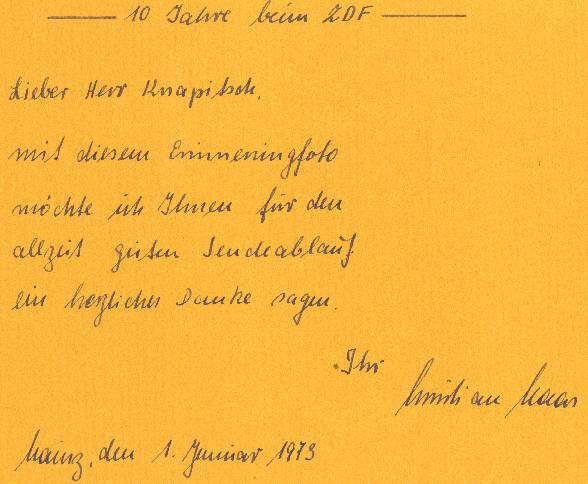 10 Jahre beim ZDF
Lieber Herr Knapitsch,
mit diesem Erinnerungfoto
möchte ich Ihnen für den
allzeit guten Sendeablauf
ein herzliches Danke sagen.
Ihr
Christian Maas
Mainz, den 1. Januar 1973